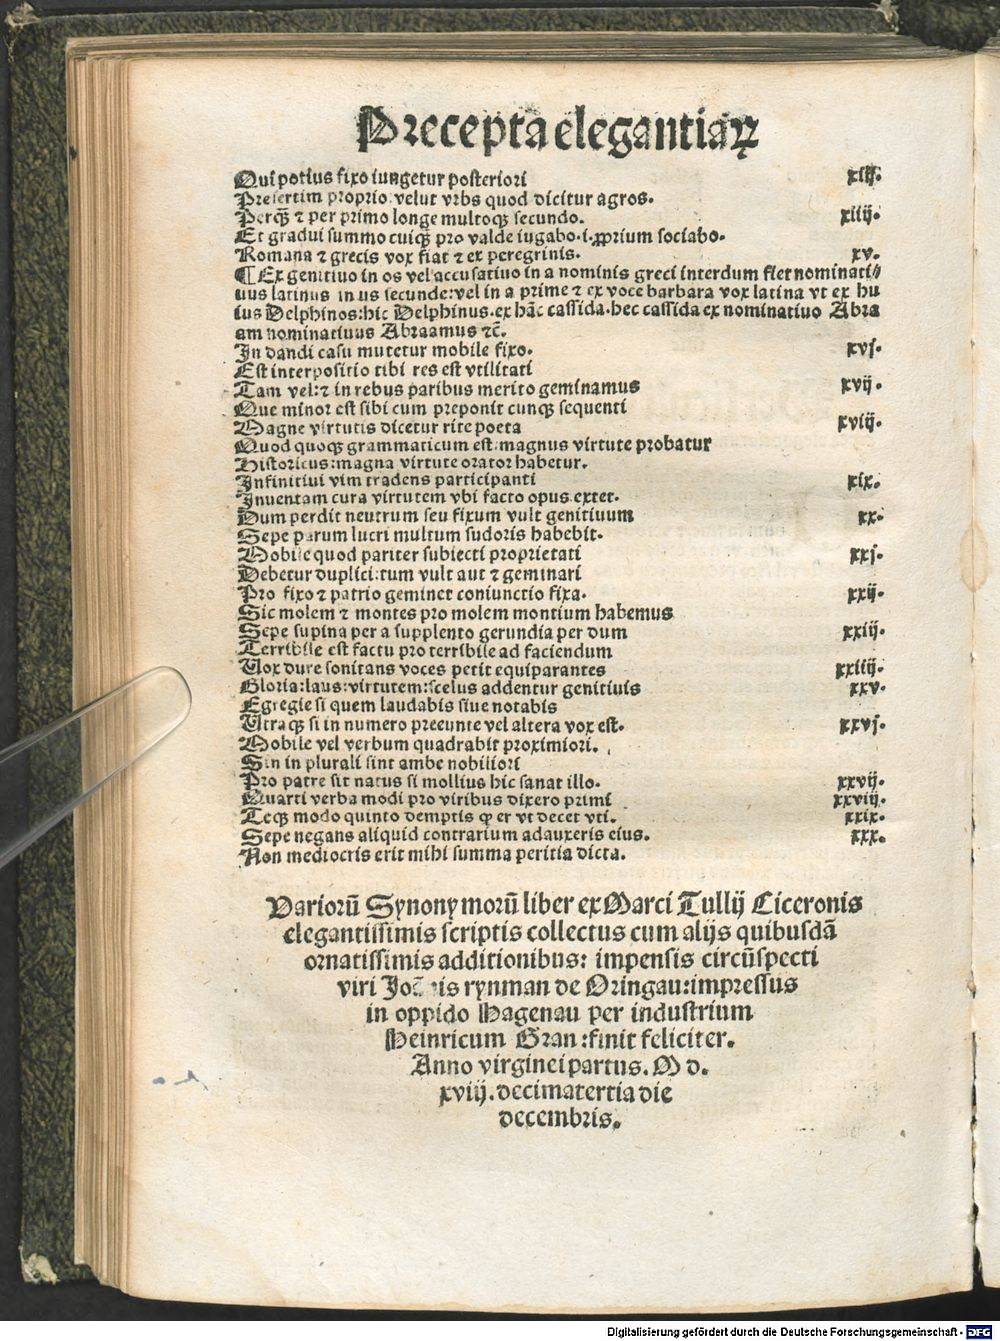 Precepta elegantiaꝝ
Qui potius fixo iungetur posteriori xiij.
Presertim proprio velut vrbs quod dicitur agros.
Perqꝫ ⁊ per primo longe multoqꝫ secundo. xiiij.
Et gradui summo cuiqꝫ pro valde iugabo.i.ꝓprium sociabo.
Romana ⁊ grecis vox fiat ⁊ ex peregrinis. xv.
¶ Ex genitiuo in os vel accusatiuo in a nominis greci interdum fiet nominati⸗
uus latinus in us secunde: vel in a prime ⁊ ex voce barbara vox latina vt ex hu
ius Delphinos: hic Delphinus. ex hãc cassida. hec cassida ex nominatiuo Abra
am nominatiuus Abraamus ⁊c̃.
In dandi casu mutetur mobile fixo. xvj.
Est interpositio tibi res est vtilitati
Tam vel: ⁊ in rebus paribus merito geminamus xvij.
Que minor est sibi cum preponit cunqꝫ sequenti
Magne virtutis dicetur rite poeta xviij.
Quod quoqꝫ grammaticum est: magnus virtute probatur
Historicus: magna virtute orator habetur.
Infinitiui vim tradens participanti xix.
Inuentam cura virtutem vbi facto opus extet.
Dum perdit neutrum seu fixum vult genitiuum xx.
Sepe parum lucri multum sudoris habebit.
Mobile quod pariter subiecti proprietati xxj.
Debetur duplici: tum vult aut ⁊ geminari
Pro fixo ⁊ patrio geminet coniunctio fixa. xxij.
Sic molem ⁊ montes pro molem montium habemus
Sepe supina per a supplento gerundia per dum xxiij.
Terribile est factu pro terribile ad faciendum
Vox dure sonitans voces petit equiparantes xxiiij.
Gloria: laus: virtutem: scelus addentur genitiuis xxv.
Egregie si quem laudabis siue notabis
Vtraqꝫ si in numero preeunte vel altera vox est. xxvj.
Mobile vel verbum quadrabit proximiori.
Sin in plurali sint ambe nobiliori
Pro patre sit natus si mollius hic sanat illo. xxvij.
Quarti verba modi pro viribus dixero primi xxviij.
Teqꝫ modo quinto demptis ꝙ er vt decet vti. xxix.
Sepe negans aliquid contrarium adauxeris eius. xxx.
Non mediocris erit mihi summa peritia dicta.
Variorũ Synonymorũ liber ex Marci Tullij Ciceronis
elegantissimis scriptis collectus cum alijs quibusdã
ornatissimis additionibus: impensis circũspecti
viri Joãnis rynman de Oringau: impressus
in oppido Hagenau per industrium
Heinricum Gran: finit feliciter.
Anno virginei partus. M d.
xviij. decimatertia die
decembris.
Digitalisierung gefördert durch die Deutsche Forschungsgemeinschaft - DFG